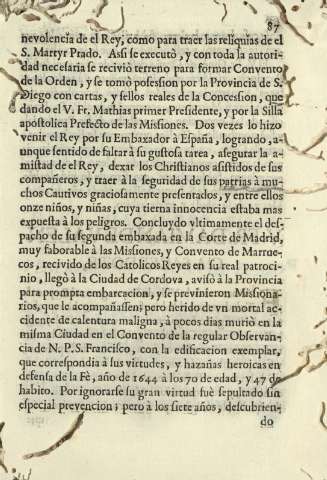 87
nevolencia de el Rey, como para traer las reliquias de el
S. Martyr Prado. Assi se executò, y con toda la autori-
dad necesaria se recivió terreno para formar Convento
de la Orden, y se tomò posession por la Provincia de S.
Diego con cartas, y sellos reales de la Concession, que
dando el V. Fr. Mathias primer Presidente, y por la Silla
apostolica Prefecto de las Missiones. Dos vezes lo hizo
venir el Rey por su Embaxador à España, logrando, a-
unque sentido de faltar à su gustosa tarea, asegurar la a-
mistad de el Rey, dexar los Christianos asistidos de sus
compañeros, y traer à la seguridad de sus patrias à mu-
chos Cautivos graciosamente presentados, y entre ellos
onze niños, y niñas, cuya tierna innocencia estaba mas
expuesta à los peligros. Concluydo vltimamente el des-
pacho de su segunda embaxada en la Corte de Madrid,
muy faborable à las Missiones, y Convento de Marrue-
cos, recivido de los Catolicos Reyes en su real patroci-
nio, llegò à la Ciudad de Cordova, avisò à la Provincia
para prompta embarcacion, y se previnieron Missiona-
rios, que le acompañassen; pero herido de vn mortal ac-
cidente de calentura maligna, à pocos dias muriò en la
misma Ciudad en el Convento de la regular Observan-
cia de N. P. S. Francisco, con la edificacion exemplar,
que correspondia à sus virtudes, y hazañas heroicas en
defensa de la Fè, año de 1644 à los 70 de edad, y 47 de
habito. Por ignorarse su gran virtud fuè sepultado sin
especial prevencion; pero à los siete años, descubrien-
do